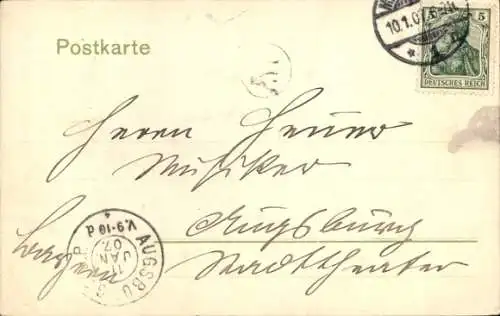 Postkarte
10.1.07
5 5
DEUTSCHES REICH
Herrn
Musiker
Augsburg
Bayern
Stadttheater
AUGSBURG
V.9-10
JAN
07